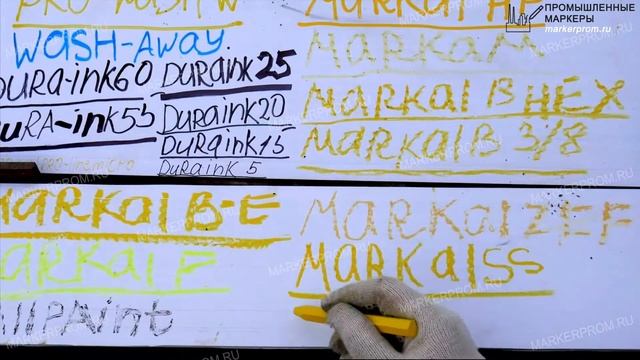 PRO WASH W
WASH-AWAY.
DURA-INK60
DURA-INK55
DURAINK25
DURAINK20
DURAINK15
DURAINK 5
MARKAL HP
MARKAL M
MARKAL B HEX
MARKAL B 3/8
MARKAL B-E
MARKAL F
MARKAL SS
ПРОМЫШЛЕННЫЕ
МАРКЕРЫ
markerprom.ru
MARKERPROM.RU